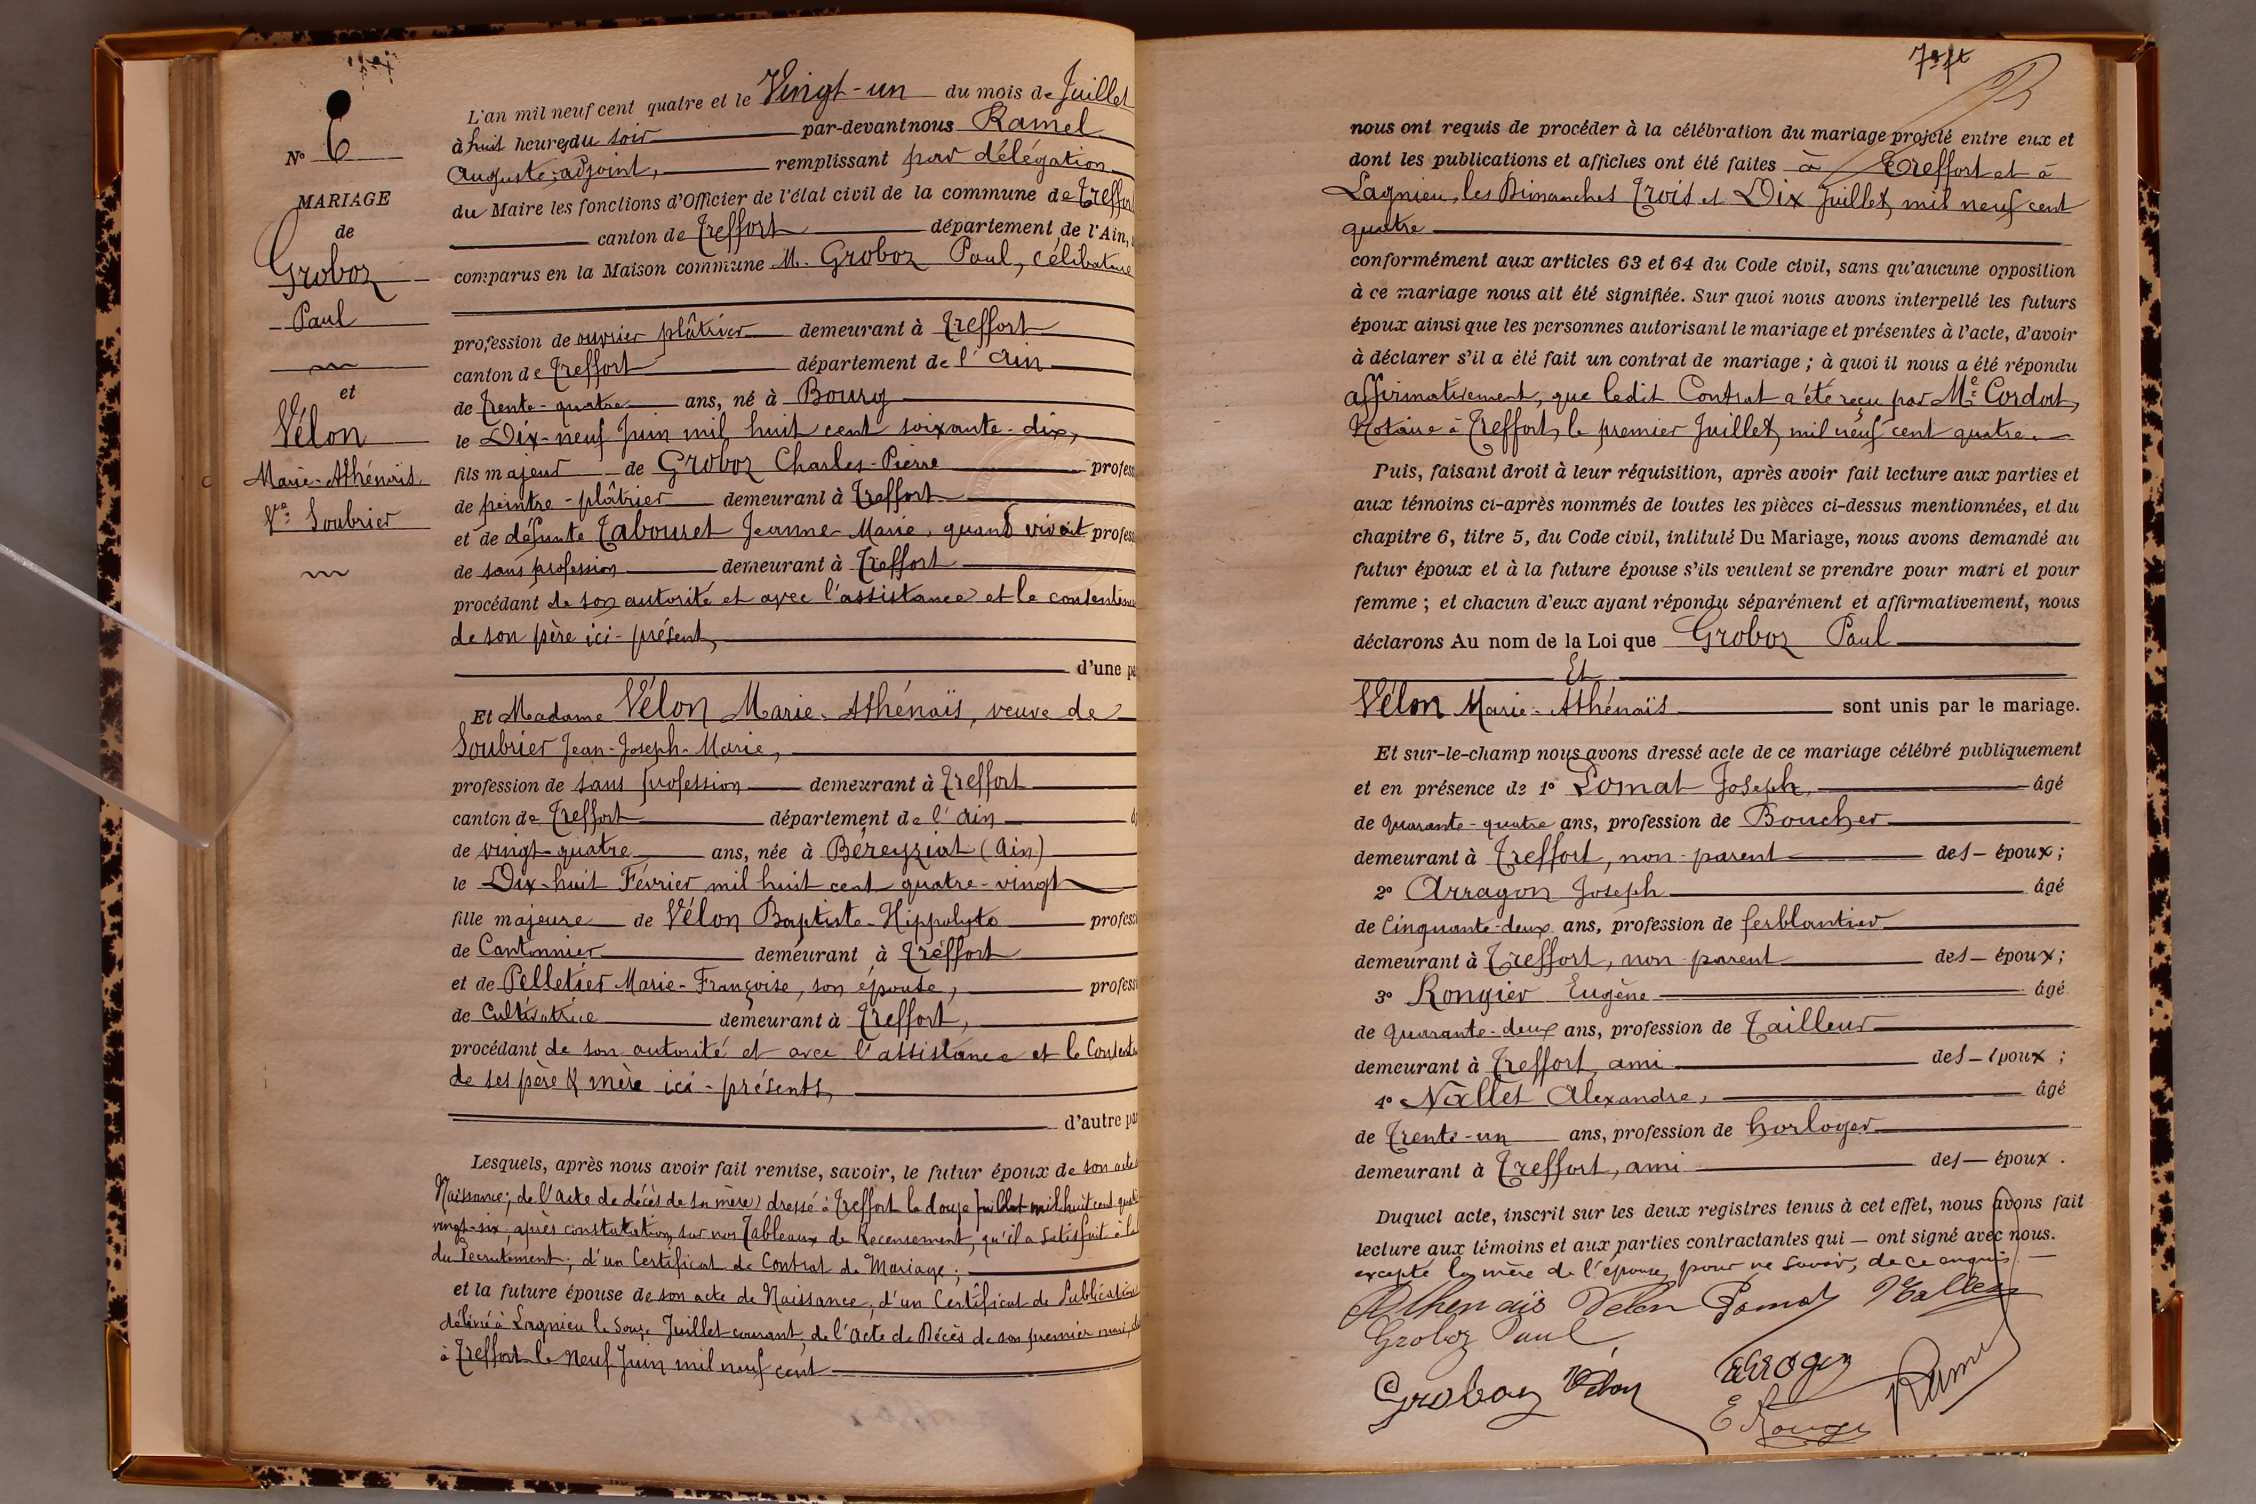 N° 6
MARIAGE
de
Groboz
Paul
et
Vélon
Marie-Athénaïs
Vve Soubrier
L'an mil neuf cent quatre et le Vingt-un du mois de Juillet
à huit heures du soir par-devant nous Ramel
Auguste, adjoint, remplissant par délégation
du Maire les fonctions d'Officier de l'état civil de la commune de Treffort
canton de Treffort département de l'Ain,
comparus en la Maison commune M. Groboz Paul, célibataire
profession de ouvrier plâtrier demeurant à Treffort
canton de Treffort département de l'Ain
de trente-quatre ans, né à Bourg
le Dix-neuf Juin mil huit cent soixante-dix,
fils majeur de Groboz Charles-Pierre profess
de peintre-plâtrier demeurant à Treffort
et de défunte Tabouret Jeanne-Marie, quand vivait profess
de sans profession demeurant à Treffort
procédant de son autorité et avec l'assistance et le consentem
de son père ici-présent,
d'une pa
Et Madame Vélon Marie-Athénaïs, veuve de
Soubrier Jean-Joseph-Marie,
profession de sans profession demeurant à Treffort
canton de Treffort département de l'Ain
de vingt-quatre ans, née à Béreyziat (Ain)
le Dix-huit Février mil huit cent quatre-vingt
fille majeure de Vélon Baptiste-Hippolyte professi
de Cantonnier demeurant à Treffort
et de Pelletier Marie-Françoise, son épouse, professi
de Cultivatrice demeurant à Treffort,
procédant de son autorité et avec l'assistance et le Consent
de ses père & mère ici-présents,
d'autre pa
Lesquels, après nous avoir fait remise, savoir, le futur époux de son acte
Naissance; de l'acte de décès de sa mère, dressé à Treffort le douze Juillet mil huit cent quatre
vingt-six, après constatation, sur nos Tableaux de Recensement, qu'il a satisfait à la
du recrutement; d'un Certificat de Contrat de Mariage;
et la future épouse de son acte de Naissance, d'un Certificat de Publication
délivré à Lagnieu le Juillet courant, de l'Acte de Décès de son premier mari,
à Treffort le neuf Juin mil neuf cent
7
nous ont requis de procéder à la célébration du mariage projeté entre eux et
dont les publications et affiches ont été faites à Treffort et à
Lagnieu, les Dimanches Trois et Dix Juillet, mil neuf cent
quatre
conformément aux articles 63 et 64 du Code civil, sans qu'aucune opposition
à ce mariage nous ait été signifiée. Sur quoi nous avons interpellé les futurs
époux ainsi que les personnes autorisant le mariage et présentes à l'acte, d'avoir
à déclarer s'il a été fait un contrat de mariage; à quoi il nous a été répondu
affirmativement, que ledit Contrat a été reçu par Me Cordort,
Notaire à Treffort, le premier Juillet, mil neuf cent quatre.
Puis, faisant droit à leur réquisition, après avoir fait lecture aux parties et
aux témoins ci-après nommés de toutes les pièces ci-dessus mentionnées, et du
chapitre 6, titre 5, du Code civil, intitulé Du Mariage, nous avons demandé au
futur époux et à la future épouse s'ils veulent se prendre pour mari et pour
femme; et chacun d'eux ayant répondu séparément et affirmativement, nous
déclarons Au nom de la Loi que Groboz Paul
Et
Vélon Marie-Athénaïs sont unis par le mariage.
Et sur-le-champ nous avons dressé acte de ce mariage célébré publiquement
et en présence de 1° Pomat Joseph, âgé
de quarante-quatre ans, profession de Boucher
demeurant à Treffort, non-parent des époux;
2° Arragon Joseph âgé
de Cinquante-deux ans, profession de ferblantier
demeurant à Treffort, non-parent des époux;
3° Rongier Eugène âgé
de quarante-deux ans, profession de Tailleur
demeurant à Treffort, ami des époux;
4° Nallet Alexandre, âgé
de Trente-un ans, profession de horloger
demeurant à Treffort, ami des époux.
Duquel acte, inscrit sur les deux registres tenus à cet effet, nous avons fait
lecture aux témoins et aux parties contractantes qui ont signé avec nous.
excepté la mère de l'épouse, pour ne savoir, de ce enquis
Athenaïs Velon Pomat Nallet
Groboz Paul
Groboz Vélon
E Rongier Ramel